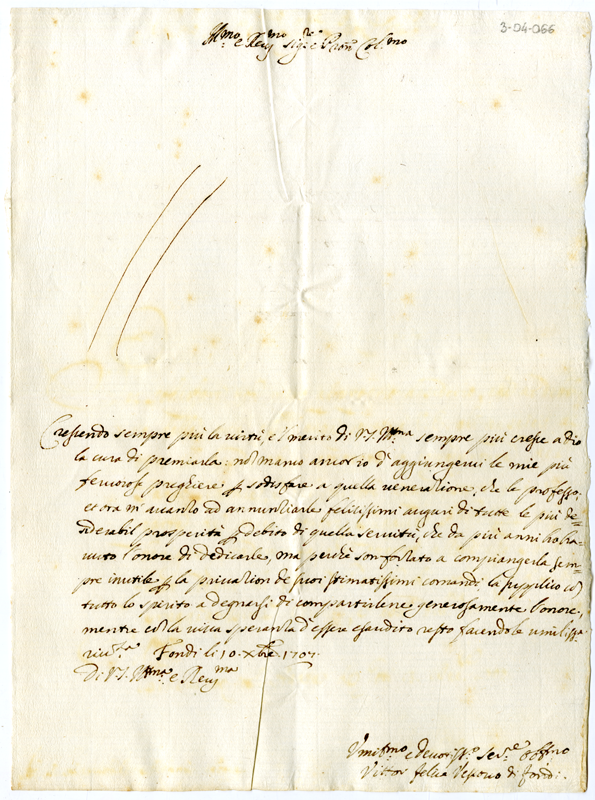 3-04-066
Ill.mo e Rev.mo Sig.re e Pron Col.mo
Crescendo sempre più la virtù, e 'l merito di V.S. Ill.ma sempre più cresce a dio
la cura di premiarla: nè manco ancor io d' aggiungervi le mie più
fervorose preghiere p sodisfare a quella venerazione, che le professo,
et ora m' avanzo ad annunziarle felicissimi auguri di tutte le più de=
siderabil prosperità p debito di quella servitù, che da più anni ho ha=
vuto l'onore di dedicarle, ma perchè son forzato a compiangerla sem=
pre inutile p la privazion de suoi stimatissimi comandi la supplico cō
tutto lo spirito a degnarsi di compartirlene generosamente l'onore,
mentre cō la viva speranza d' essere esaudito resto facendole umiliss.a
riv.za Fondi li 10. Xbre 1707.
Di V.S. Ill.ma e Rev.ma
Vmil.mo e devotiss.o Ser.e obb.mo
Vittor felice Vescovo di fondi.